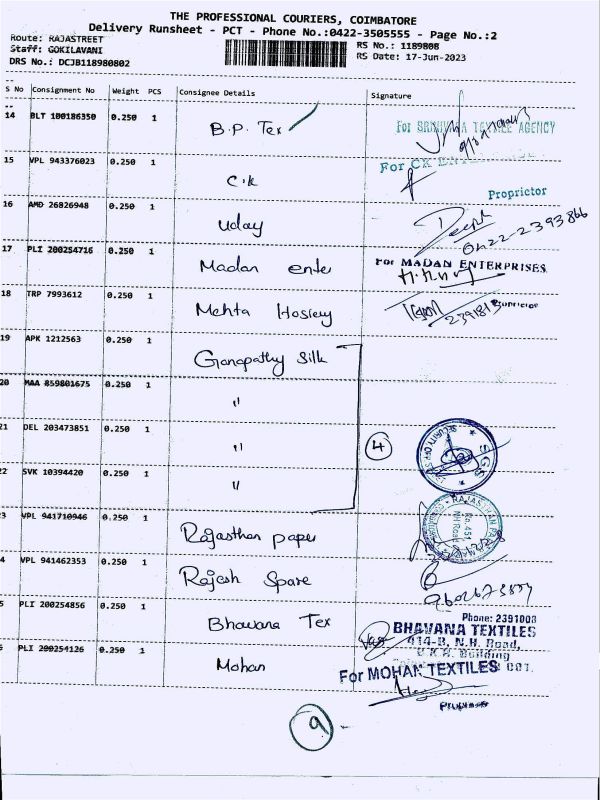 THE PROFESSIONAL COURIERS, COIMBATORE
Delivery Runsheet - PCT - Phone No.:0422-3505555 - Page No.:2
Route: RAJASTREET
RS No.: 1189808
Staff: GOKILAVANI
RS Date: 17-Jun-2023
DRS No.: DCJB118980802
S No Consignment No Weight PCS Consignee Details Signature
14 BLT 100186350 0.250 1 B.P. Tex
For SRINIVASA TEXTILE AGENCY
15 VPL 943376023 0.250 1 C.K
For CK
Proprictor
16 AMD 26826948 0.250 1 Uday
0422-2393866
17 PLI 200254716 0.250 1 Madan enter
For MADAN ENTERPRISES
18 TRP 7993612 0.250 1 Mehta Hosiery
Proprietor
19 APK 1212563 0.250 1 Ganapathy Silk
20 MAA 859801675 0.250 1 "
21 DEL 203473851 0.250 1 "
4
SGS
22 SVK 10394420 0.250 1 "
3 VPL 941710946 0.250 1 Rajasthan paper
RAJASTHAN PAPER
4 VPL 941462353 0.250 1 Rajesh Spare
5 PLI 200254856 0.250 1 Bhavana Tex
Phone: 2391003
BHAVANA TEXTILES
414-B, N.H. Road,
Building
6 PLI 200254126 0.250 1 Mohan
For MOHAN TEXTILES 001.
9